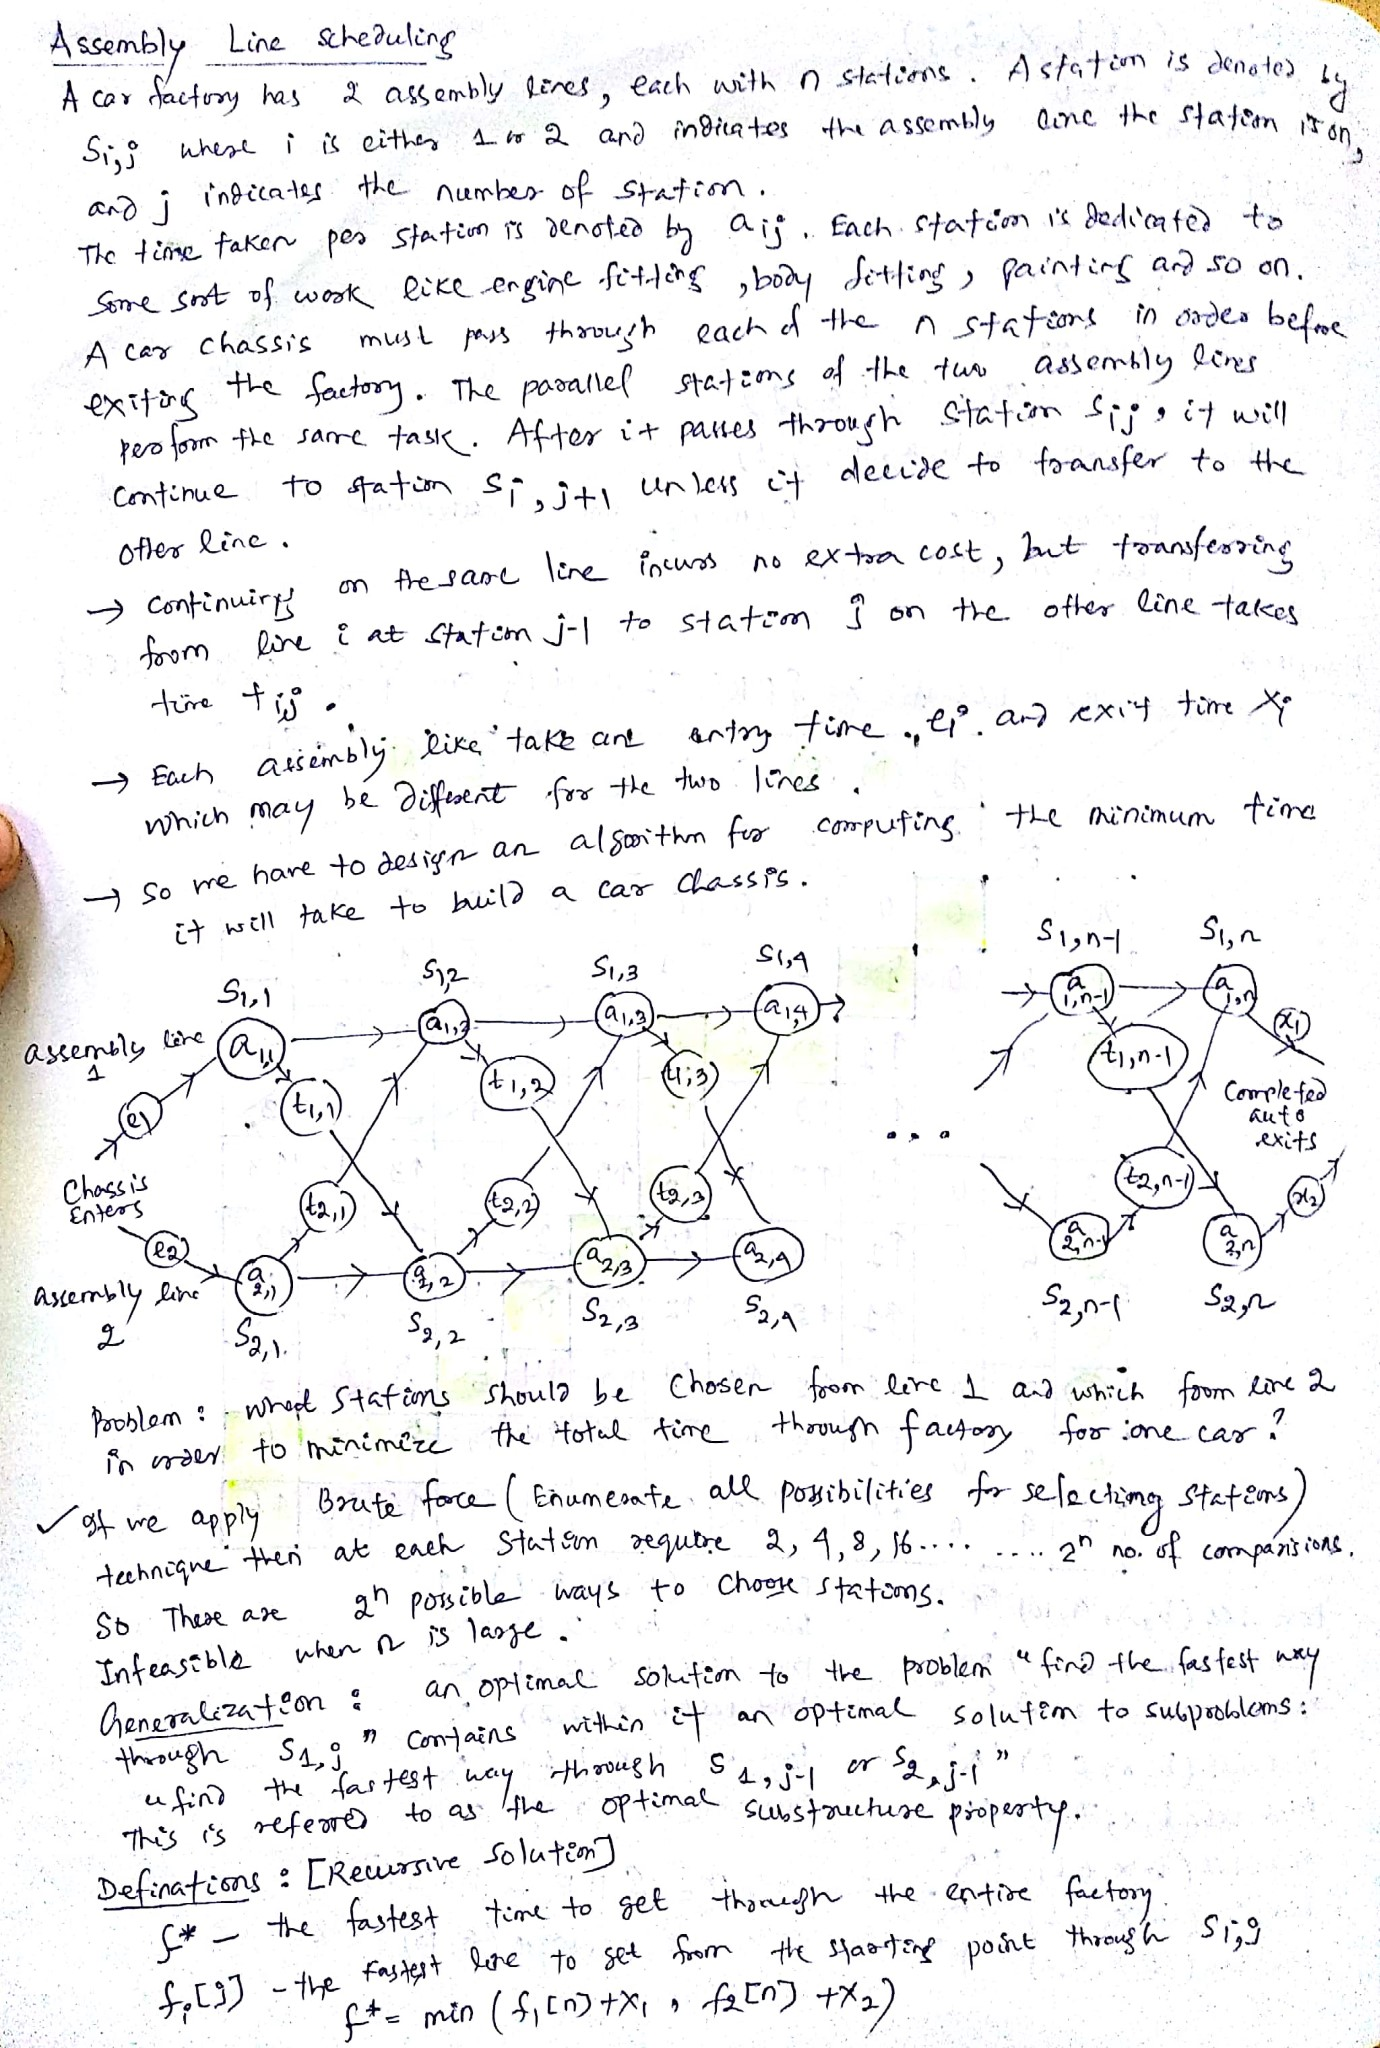 Assembly Line scheduling
A car factory has 2 assembly lines, each with n stations. A station is denoted by
Si,j where i is either 1 or 2 and indicates the assembly line the station is on,
and j indicates the number of station.
The time taken per station is denoted by aij. Each station is dedicated to
some sort of work like engine fitting, body fitting, painting and so on.
A car chassis must pass through each of the n stations in order before
exiting the factory. The parallel stations of the two assembly lines
perform the same task. After it passes through station Sij, it will
continue to station Si,j+1 unless it decide to transfer to the
other line.
→ continuing on the same line incurs no extra cost, but transferring
from line i at station j-1 to station j on the other line takes
time tij.
→ Each assembly like take ane entry time, ei. and exit time xi
which may be different for the two lines.
→ So we have to design an algorithm for computing the minimum time
it will take to build a car chassis.
S1,1 S1,2 S1,3 S1,4 S1,n-1 S1,n
assembly line 1
a1,1 a1,2 a1,3 a1,4 a1,n-1 a1,n
x1
e1 t1,1 t1,2 t1,3 t1,n-1
Completed
auto
exits
...
Chassis
Enters
t2,1 t2,2 t2,3 t2,n-1 x2
e2
assembly line
2
a2,1 a2,2 a2,3 a2,4 a2,n-1 a2,n
S2,1 S2,2 S2,3 S2,4 S2,n-1 S2,n
Problem: what stations should be chosen from line 1 and which from line 2
in order to minimize the total time through factory for one car?
✓ If we apply Brute force (Enumerate all possibilities for selecting stations)
technique then at each station require 2, 4, 8, 16.... .... 2^n no. of comparisions.
So There are 2^n possible ways to choose stations.
Infeasible when n is large.
Generalization: an optimal solution to the problem "find the fastest way
through S1,j" contains within it an optimal solution to subproblems:
"find the fastest way through S1,j-1 or S2,j-1"
This is referred to as the optimal substructure property.
Definations: [Recursive solution]
f* - the fastest time to get through the entire factory
fi[j] - the fastest line to get from the starting point through Si,j
f* = min (f1[n]+x1, f2[n]+x2)